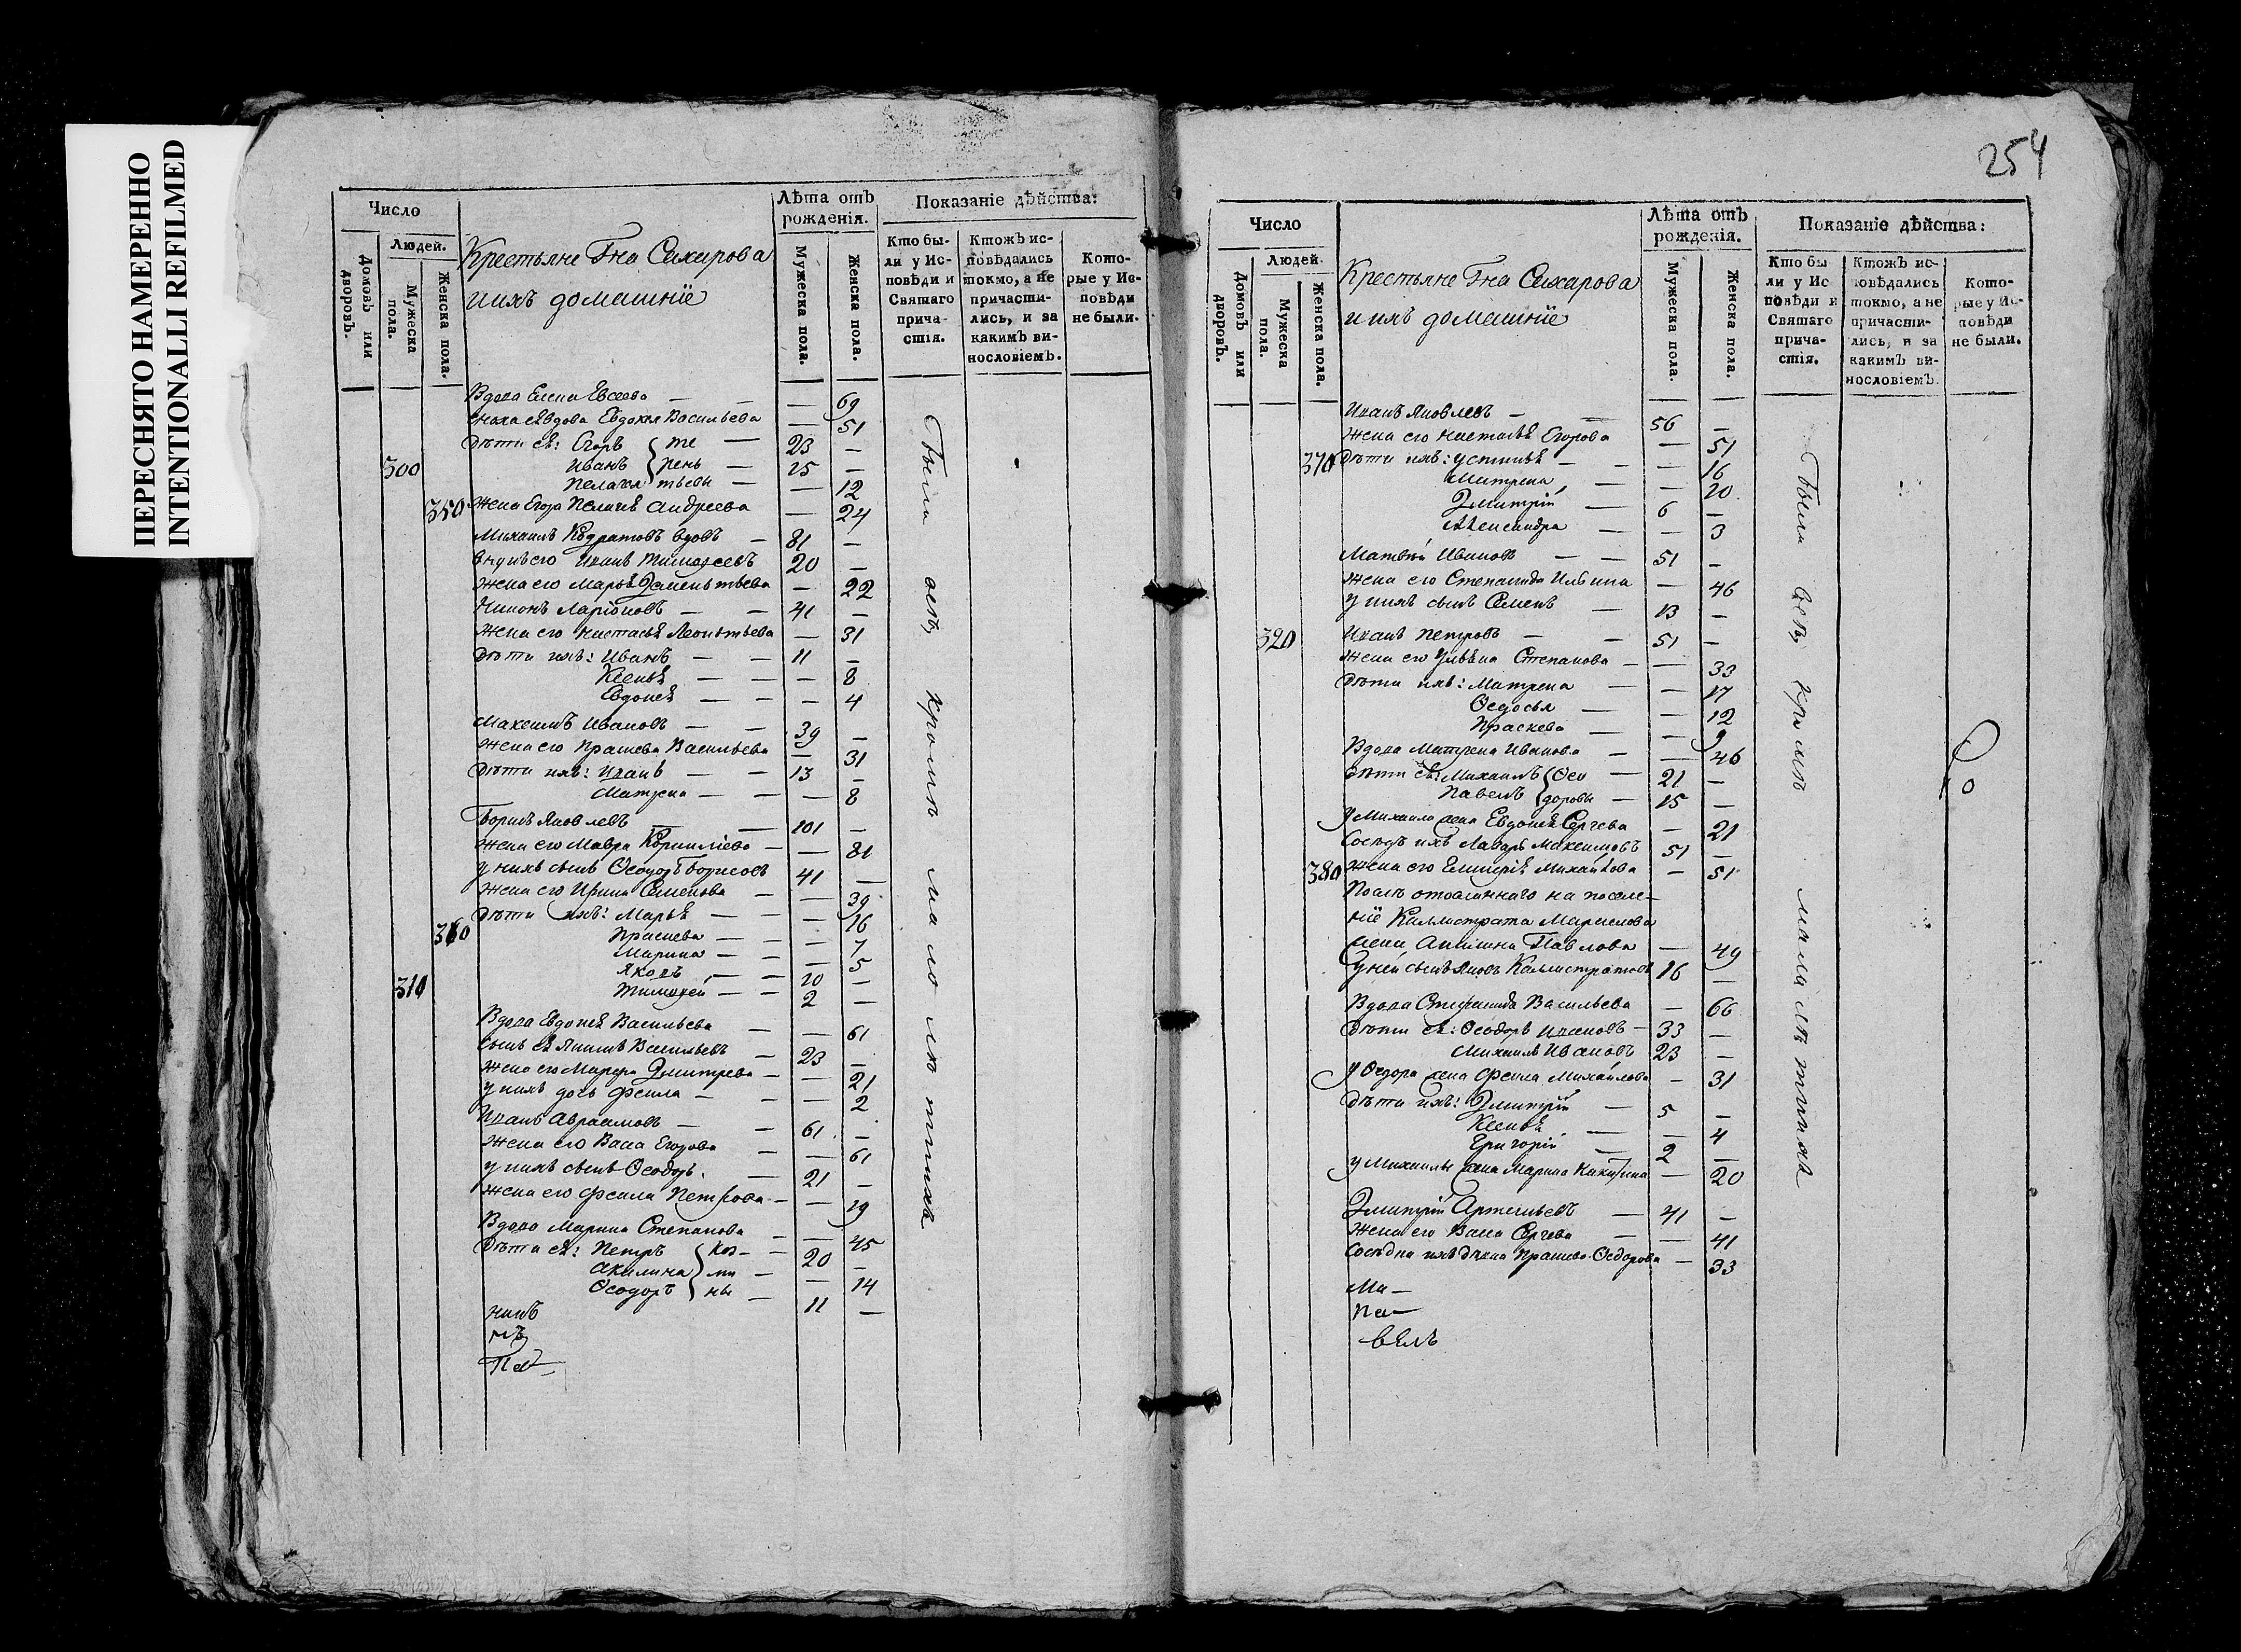 ПЕРЕСНЯТО НАМЕРЕННО
INTENTIONALLI REFILMED
Число
Людей.
Домовъ или дворовъ.
Мужеска пола.
Женска пола.
Крестьяне Гна Сахарова
и ихъ домашнїе
Лѣта отъ рожденїя.
Мужеска пола.
Женска пола.
Показанїе дѣйства:
Кто бы-
ли у Ис-
повѣди и
Святаго
прича-
стїя.
Ктожъ ис-
повѣдались
токмо, а не
причасти-
лись, и за
какимъ ви-
нословїемъ.
Кото-
рые у Ис-
повѣди
не были.
Вдова Елена Евсеева — — 69
Сноха еѣ вдова Евдокѣя Васильева — 51
Дѣти еѣ: Егоръ те — 23 —
300 Иванъ рень — 15 —
Пелагея тьевы — — 12
350 Жена Егора Пелагѣя Андреева — 24
Михаилъ Кодратовъ вдовъ — 81 —
внукъ его Иванъ Тимофеевъ 20 —
Жена его Марья Дементьева — 22
Никонъ Ларїоновъ — — 41 —
Жена его Настасья Леонтьева — 31
Дѣти ихъ: Иванъ — — 11 —
Ксенья — — — 8
Евдокея — — — 4
Максимъ Ивановъ — — 39 —
Жена его Прасковья Васильева — 31
Дѣти ихъ: Иванъ — — 13 —
Матрена — — — 8
Борисъ Яковлевъ — — 101 —
Жена его Мавра Корнилїева — — 81
у нихъ сынъ Ѳеодоръ Борисовъ 41 —
Жена его Ирина Семенова — — 39
Дѣти ихъ: Марья — — — 16
360 Праскева — — — 7
Марина — — — 5
Яковъ — — 10 —
310 Тимофей — — 2 —
Вдова Евдокея Васильева — — 61
Сынъ еѣ Васильевъ — 23 —
Жена его Марфа Дмитрева — — 21
у нихъ дочь Фекла — — — 2
Иванъ Авраамовъ — — 61 —
Жена его Васа Егорова — — 61
у нихъ сынъ Ѳеодоръ — 21 —
Жена его Фекла Петрова — — 19
Вдова Марина Степанова — — 45
Дѣти еѣ: Петръ Коз- — 20 —
Акилина ми — — 14
Ѳеодоръ ны — 11 —
Были всѣ, кромѣ малолѣтныхъ
254
Число
Людей.
Домовъ или дворовъ.
Мужеска пола.
Женска пола.
Крестьяне Гна Сахарова
и ихъ домашнїе
Лѣта отъ рожденїя.
Мужеска пола.
Женска пола.
Показанїе дѣйства:
Кто бы
ли у Ис
повѣди и
Святаго
прича-
стїя.
Ктожъ ис-
повѣдались
токмо, а не
причасти-
лись, и за
какимъ ви-
нословїемъ.
Кото-
рые у Ис-
повѣди
не были.
Иванъ Яковлевъ — — 56 —
Жена его Настасья Егорова — 51
370 Дѣти ихъ: Устинья — — — 16
Матрена — — 10
Дмитрїй — 6 —
Александра — — 3
Матвей Ивановъ — — 51 —
Жена его Степанида Ильина — 46
у нихъ сынъ Семенъ — 13 —
320 Иванъ Петровъ — — 51 —
Жена его Ульяна Степанова — — 33
Дѣти ихъ: Матрена — — 17
Ѳедосья — — 12
Праскева — — 9
Вдова Матрена Иванова — — 46
Дѣти еѣ: Михаилъ Ѳео — 21 —
Павелъ доровы — 15 —
у Михаила жена Евдокея Сергева — 21
Соседъ ихъ Лазарь Максимовъ 51 —
380 Жена его Михайлова — 51
Послѣ отосланнаго на поселе-
нїе Каллистрата
жена Акилина Павлова — 49
у ней сынъ Яковъ Каллистратовъ 16 —
Вдова Стефанида Васильева — 66
Дѣти еѣ: Ѳеодоръ Ивановъ — 33 —
Михаилъ Ивановъ 23 —
у Ѳедора жена Фекла Михайлова — 31
Дѣти ихъ: Дмитрїй — 5 —
Ксенья — — 4
Григорїй — 2 —
у Михаилы жена Марина Никитина — 20
Дмитрїй Артемьевъ — 41 —
Жена его Васа Сергева — — 41
Соседка ихъ Прасковья Ѳедорова — 33
Были всѣ, кромѣ малолѣтныхъ
Па-
велъ